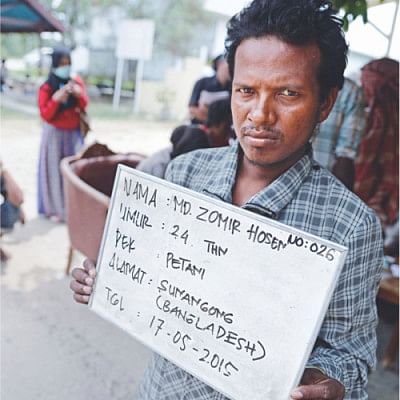 NO: 026
NAMA : MD. ZOMIR HOSEN
UMUR : 24. THN
PEK : PETANI
ALAMAT : SUNANGONG
(BANGLADESH)
TGL : 17-05-2015